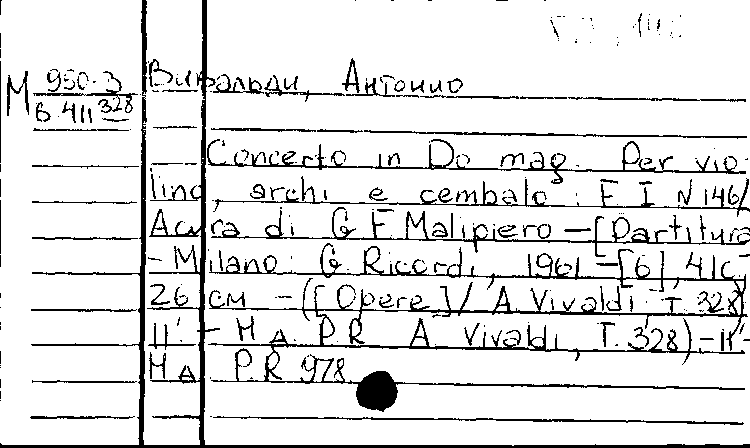 М 950·3 Вивальди, Антонио
В 411 328
Concerto in Do mag. Per vio-
lino, archi e cembalo: F I N 146/
A cura di G F Malipiero – [Partitura
– Milano: G Ricordi, 1961 – [6], 41 с,
26 см – ([Opere] / A Vivaldi T. 328)
11' – Н. д. P.R A. Vivaldi, T. 328) – 11' –
Н. д. P.R 978